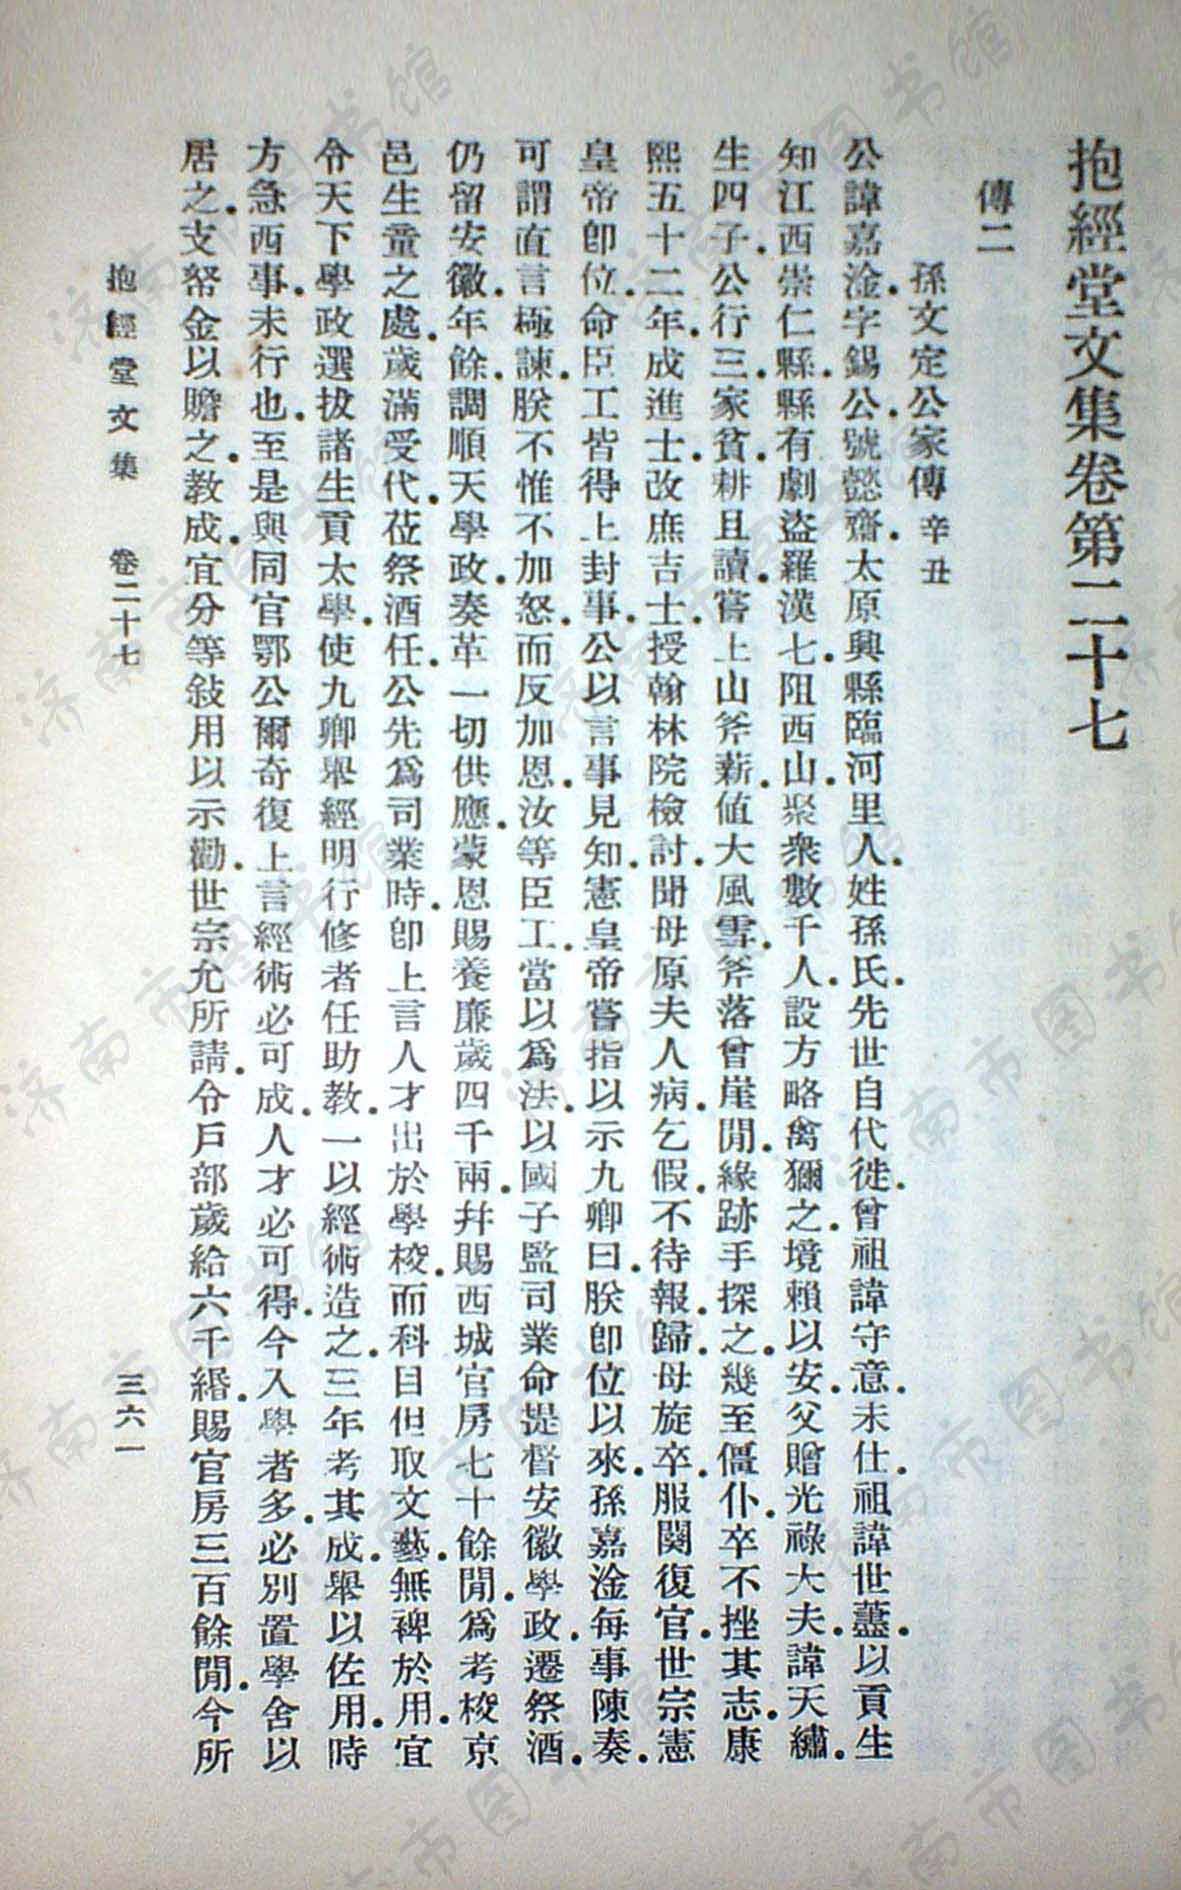 抱經堂文集卷第二十七
傳二
孫文定公家傳辛丑
公諱嘉淦.字錫公.號懿齋.太原興縣臨河里人.姓孫氏.先世自代徙.曾祖諱守意.未仕.祖諱世藎.以貢生
知江西崇仁縣.縣有劇盜羅漢七.阻西山.聚衆數千人.設方略禽獮之.境賴以安.父贈光祿大夫.諱天繡.
生四子.公行三.家貧.耕且讀.嘗上山斧薪.値大風雪.斧落曾崖閒.緣跡手探之.幾至僵仆.卒不挫其志.康
熙五十二年.成進士.改庶吉士.授翰林院檢討.聞母原夫人病.乞假.不待報.歸.母旋卒.服闋復官.世宗憲
皇帝卽位.命臣工皆得上封事.公以言事見知.憲皇帝嘗指以示九卿曰.朕卽位以來.孫嘉淦每事陳奏.
可謂直言極諫.朕不惟不加怒.而反加恩.汝等臣工.當以爲法.以國子監司業命提督安徽學政.遷祭酒.
仍留安徽.年餘.調順天學政.奏革一切供應.蒙恩賜養廉歲四千兩.幷賜西城官房七十餘閒.爲考棱京
邑生童之處.歲滿受代.莅祭酒任.公先爲司業時.卽上言人才出於學校.而科目但取文藝.無裨於用.宜
令天下學政選拔諸生貢太學.使九卿舉經明行修者任助教.一以經術造之.三年考其成.舉以佐用.時
方急西事.未行也.至是與同官鄂公爾奇復上言經術必可成.人才必可得.今入學者多.必別置學舍以
居之.支帑金以贍之.教成.宜分等敍用以示勸.世宗允所請.令戶部歲給六千緡.賜官房三百餘閒.今所
抱經堂文集 卷二十七 三六一
济南市图书馆